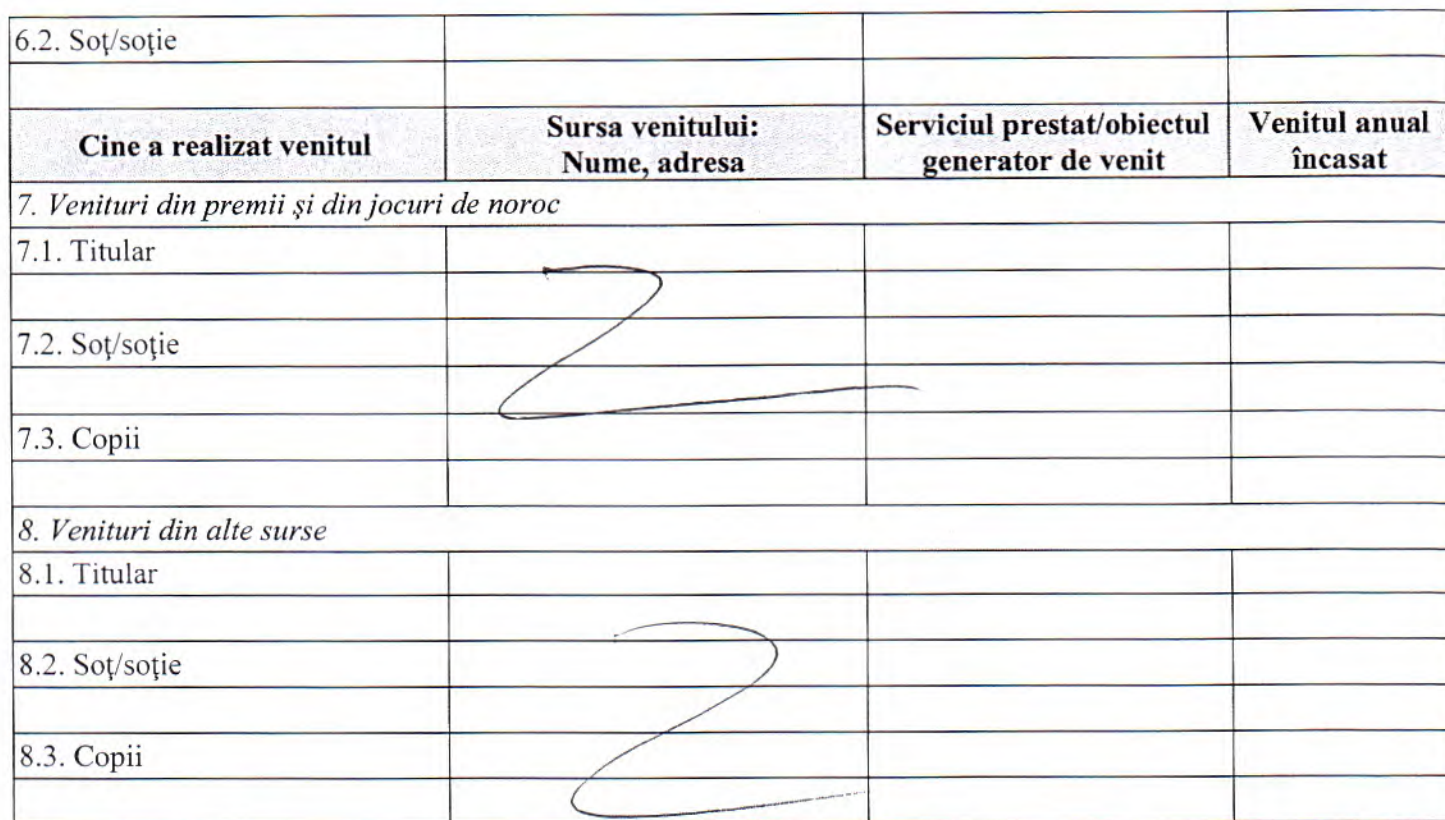 6.2. Soţ/soţie
Cine a realizat venitul
Sursa venitului:
Nume, adresa
Serviciul prestat/obiectul
generator de venit
Venitul anual
încasat
7. Venituri din premii şi din jocuri de noroc
7.1. Titular
7.2. Soţ/soţie
7.3. Copii
8. Venituri din alte surse
8.1. Titular
8.2. Soţ/soţie
8.3. Copii